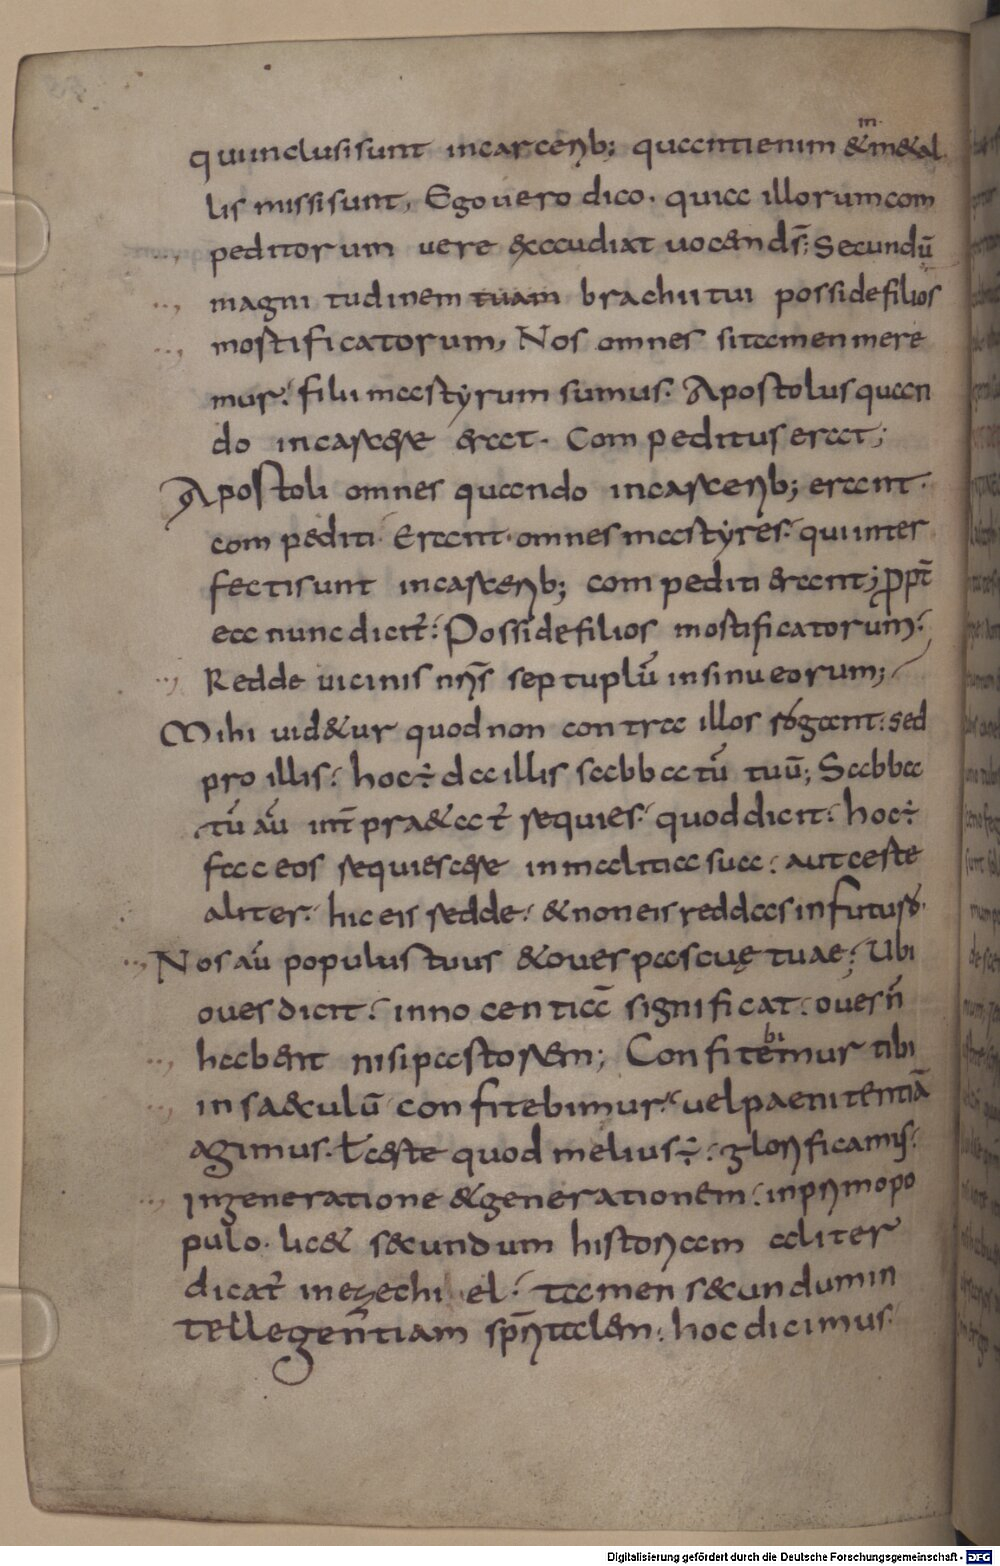 qui inclusi sunt in carcerib; quanti enim &in m&al
lis missi sunt, Ego uero dico. quia illorum com
peditorum uere exaudiat uocem ds; Secundū
magnitudinem tuam brachii tui posside filios
mortificatorum, Nos omnes si tamen mere
mur. filii martyrum sumus. Apostolus quan
do in carcere erat. Compeditus erat;
Apostoli omnes quando in carcerib; erant.
compediti. Erant. omnes martyres. qui inter
fecti sunt in carcerib; compediti erant; ꝓpt̄
ea nunc dicit. Posside filios mortificatorum.
Redde uicinis nr̄is septuplū in sinu eorum;
Mihi uid&ur quod non contra illos rogant. sed
pro illis. hoc ÷ da illis sabbatū tuū; Sabba
tū aū int̄pra&at̄ requies. quod dicit. hoc ÷
fac eos requiescere in malitia sua. aut certe
aliter. hic eis redde. & non eis reddas in futuro.
Nos aū populus tuus & oues pascuę tuae; Ubi
oues dicit. innocentiā significat. oues n̄
habent nisi pastorem; Confitebimur tibi
in saeculū confitebimur. uel paenitentiā
agimus. ł certe quod melius ÷. glorificamus.
In generatione & generationem. in primo po
pulo. lic& secundum historiam aliter
dicat̄ in ezechiel. tamen secundum in
tellegentiam sp̄ritalem. hoc dicimus.
Digitalisierung gefördert durch die Deutsche Forschungsgemeinschaft - DFG